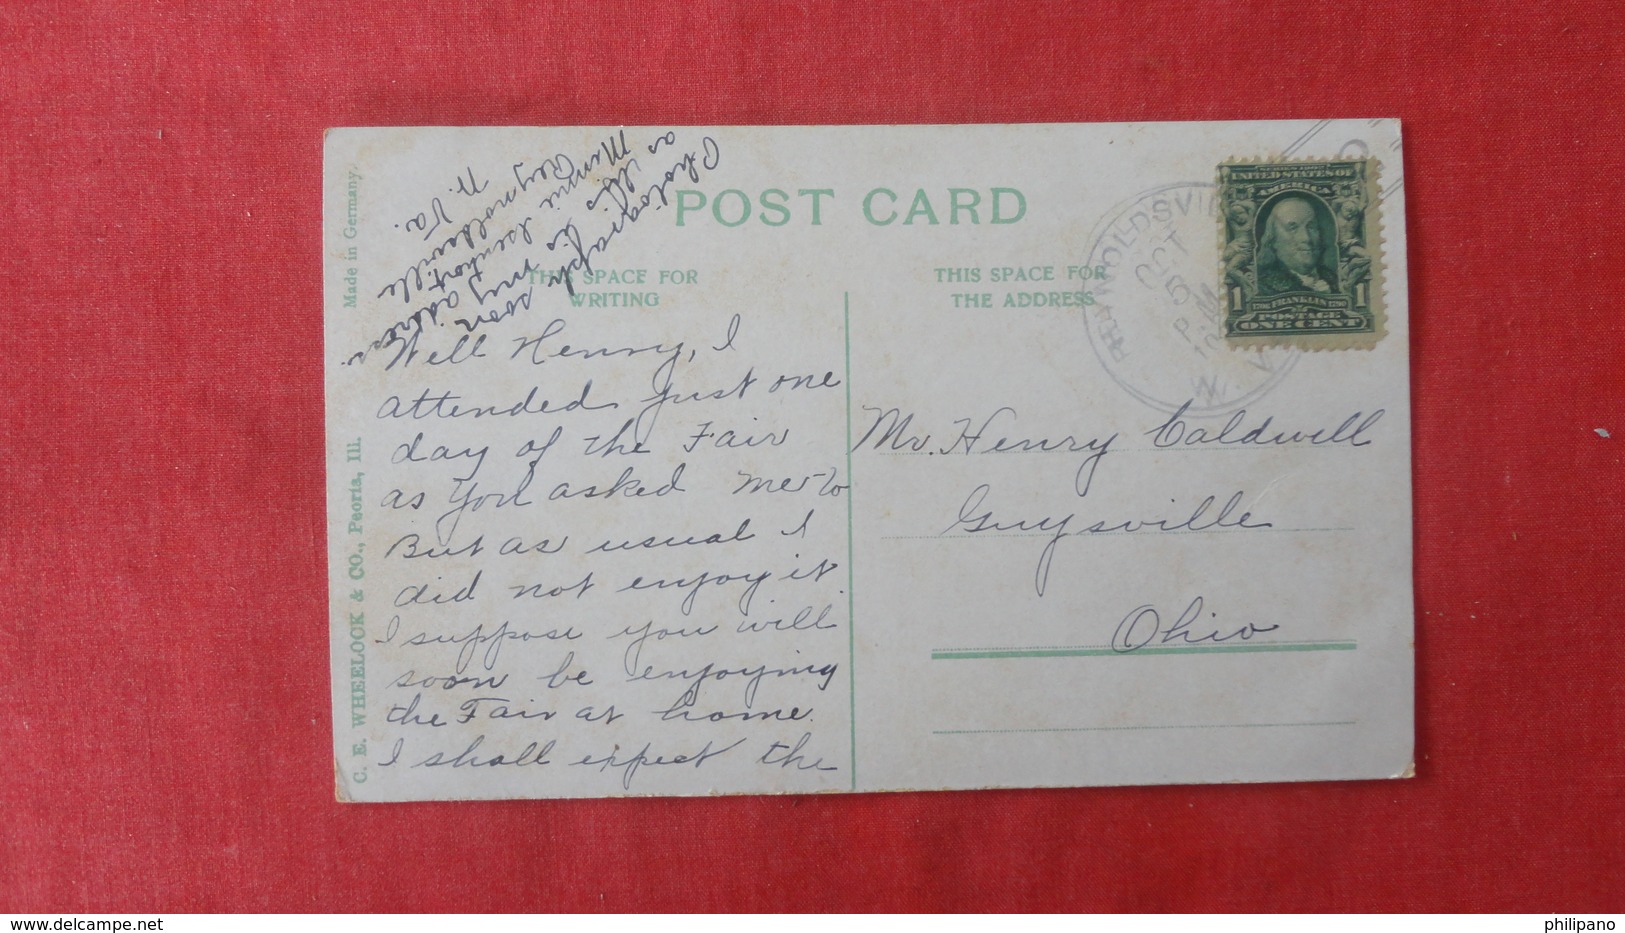 POST CARD
THIS SPACE FOR
WRITING
THIS SPACE FOR
THE ADDRESS
Made in Germany.
C. E. WHEELOOK & CO., Peoria, Ill.
REYNOLDSVILLE
OCT
5
P M
W. V
UNITED STATES OF
AMERICA
1 FRANKLIN 1
POSTAGE
ONE CENT
Mr. Henry Caldwell
Guysville
Ohio
Well Henry, I
attended just one
day of the Fair
as you asked me to
But as usual I
did not enjoy it.
I suppose you will
soon be enjoying
the Fair at home.
I shall expect the
Photograph soon
as this is my address.
Minnie
Reynoldsville
W. Va.
philipano